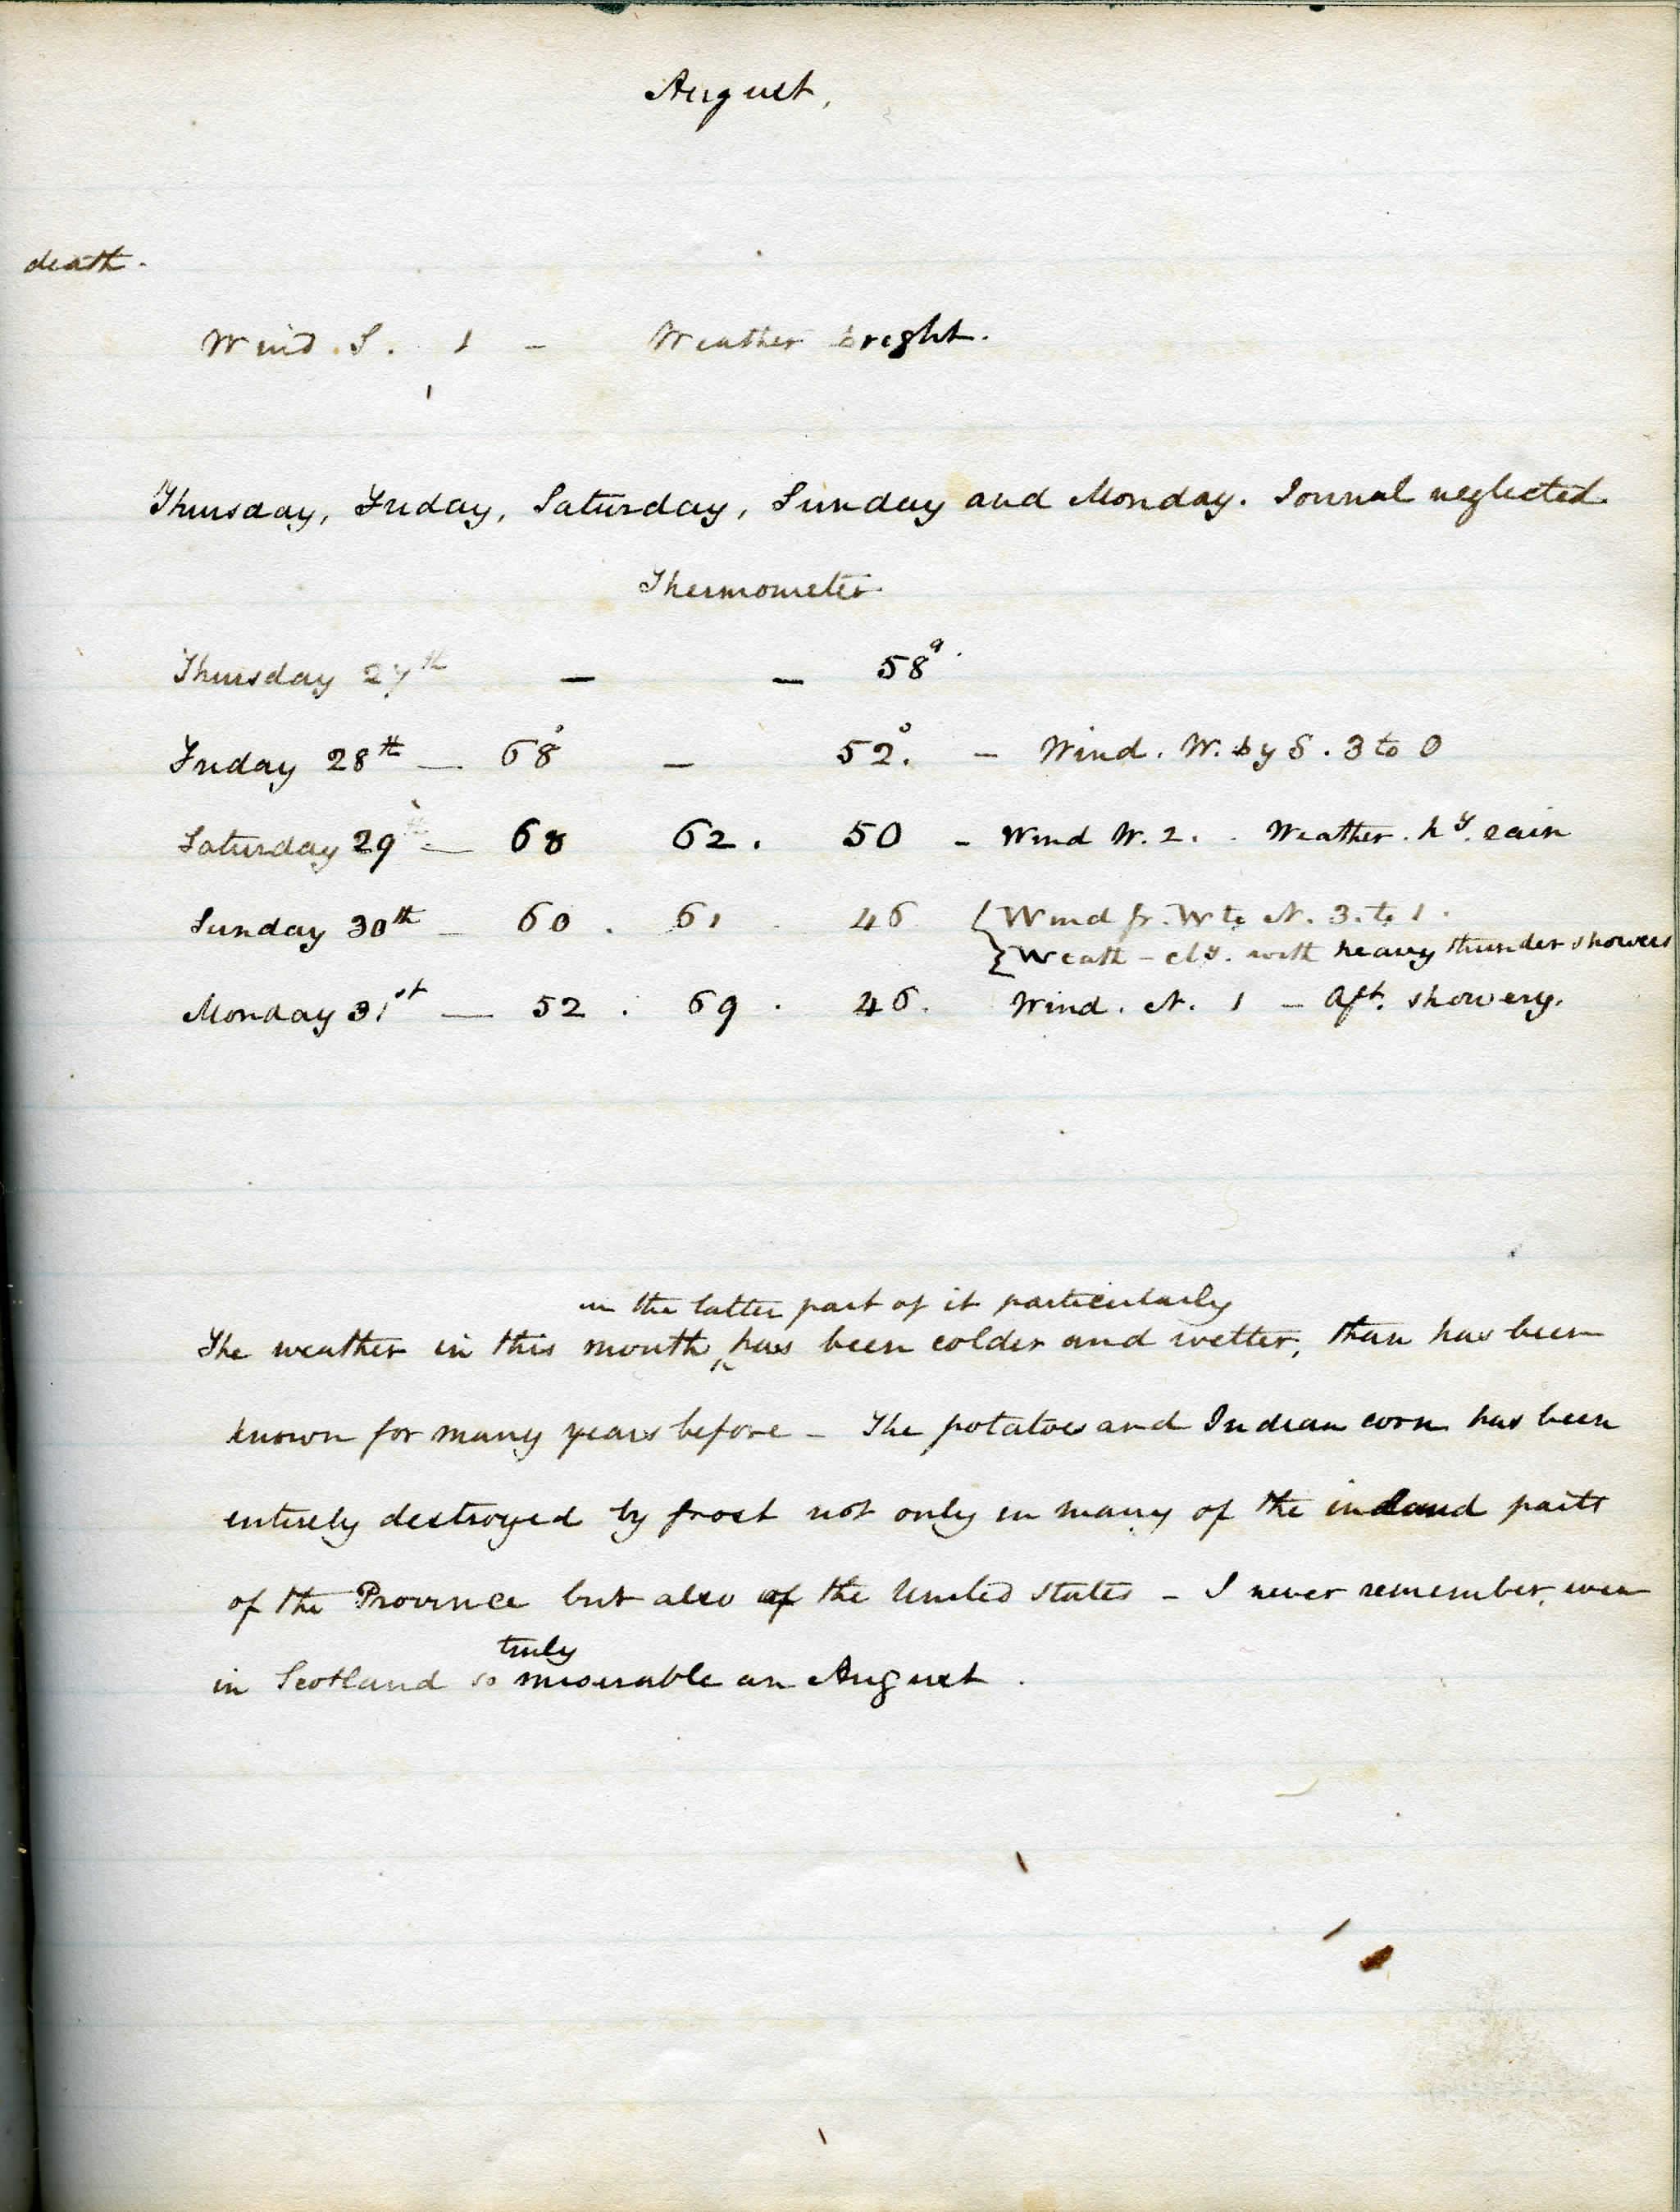 August,
death.
Wind. S. 1 - Weather bright.
Thursday, Friday, Saturday, Sunday and Monday. Journal neglected
Thermometer
Thursday 27th - - 58°.
Friday 28th — 68° - 52°. - Wind. W. by S. 3 to 0
Saturday 29th — 68 62. 50 - Wind W. 2. - Weather. hy. rain
Sunday 30th - 60 . 61 . 46 { Wind fr. W to N. 3. to 1.
{ Weath - cly. with heavy thunder showers
Monday 31st — 52 . 69 . 46. Wind. N. 1 - Aft. showery.
in the latter part of it particularly
The weather in this month, ^ has been colder and wetter, than has been
known for many years before - The potatoes and Indian corn has been
entirely destroyed by frost not only in many of the inland parts
of the Province but also of the United States - I never remember, even
truly
in Scotland so miserable an August.